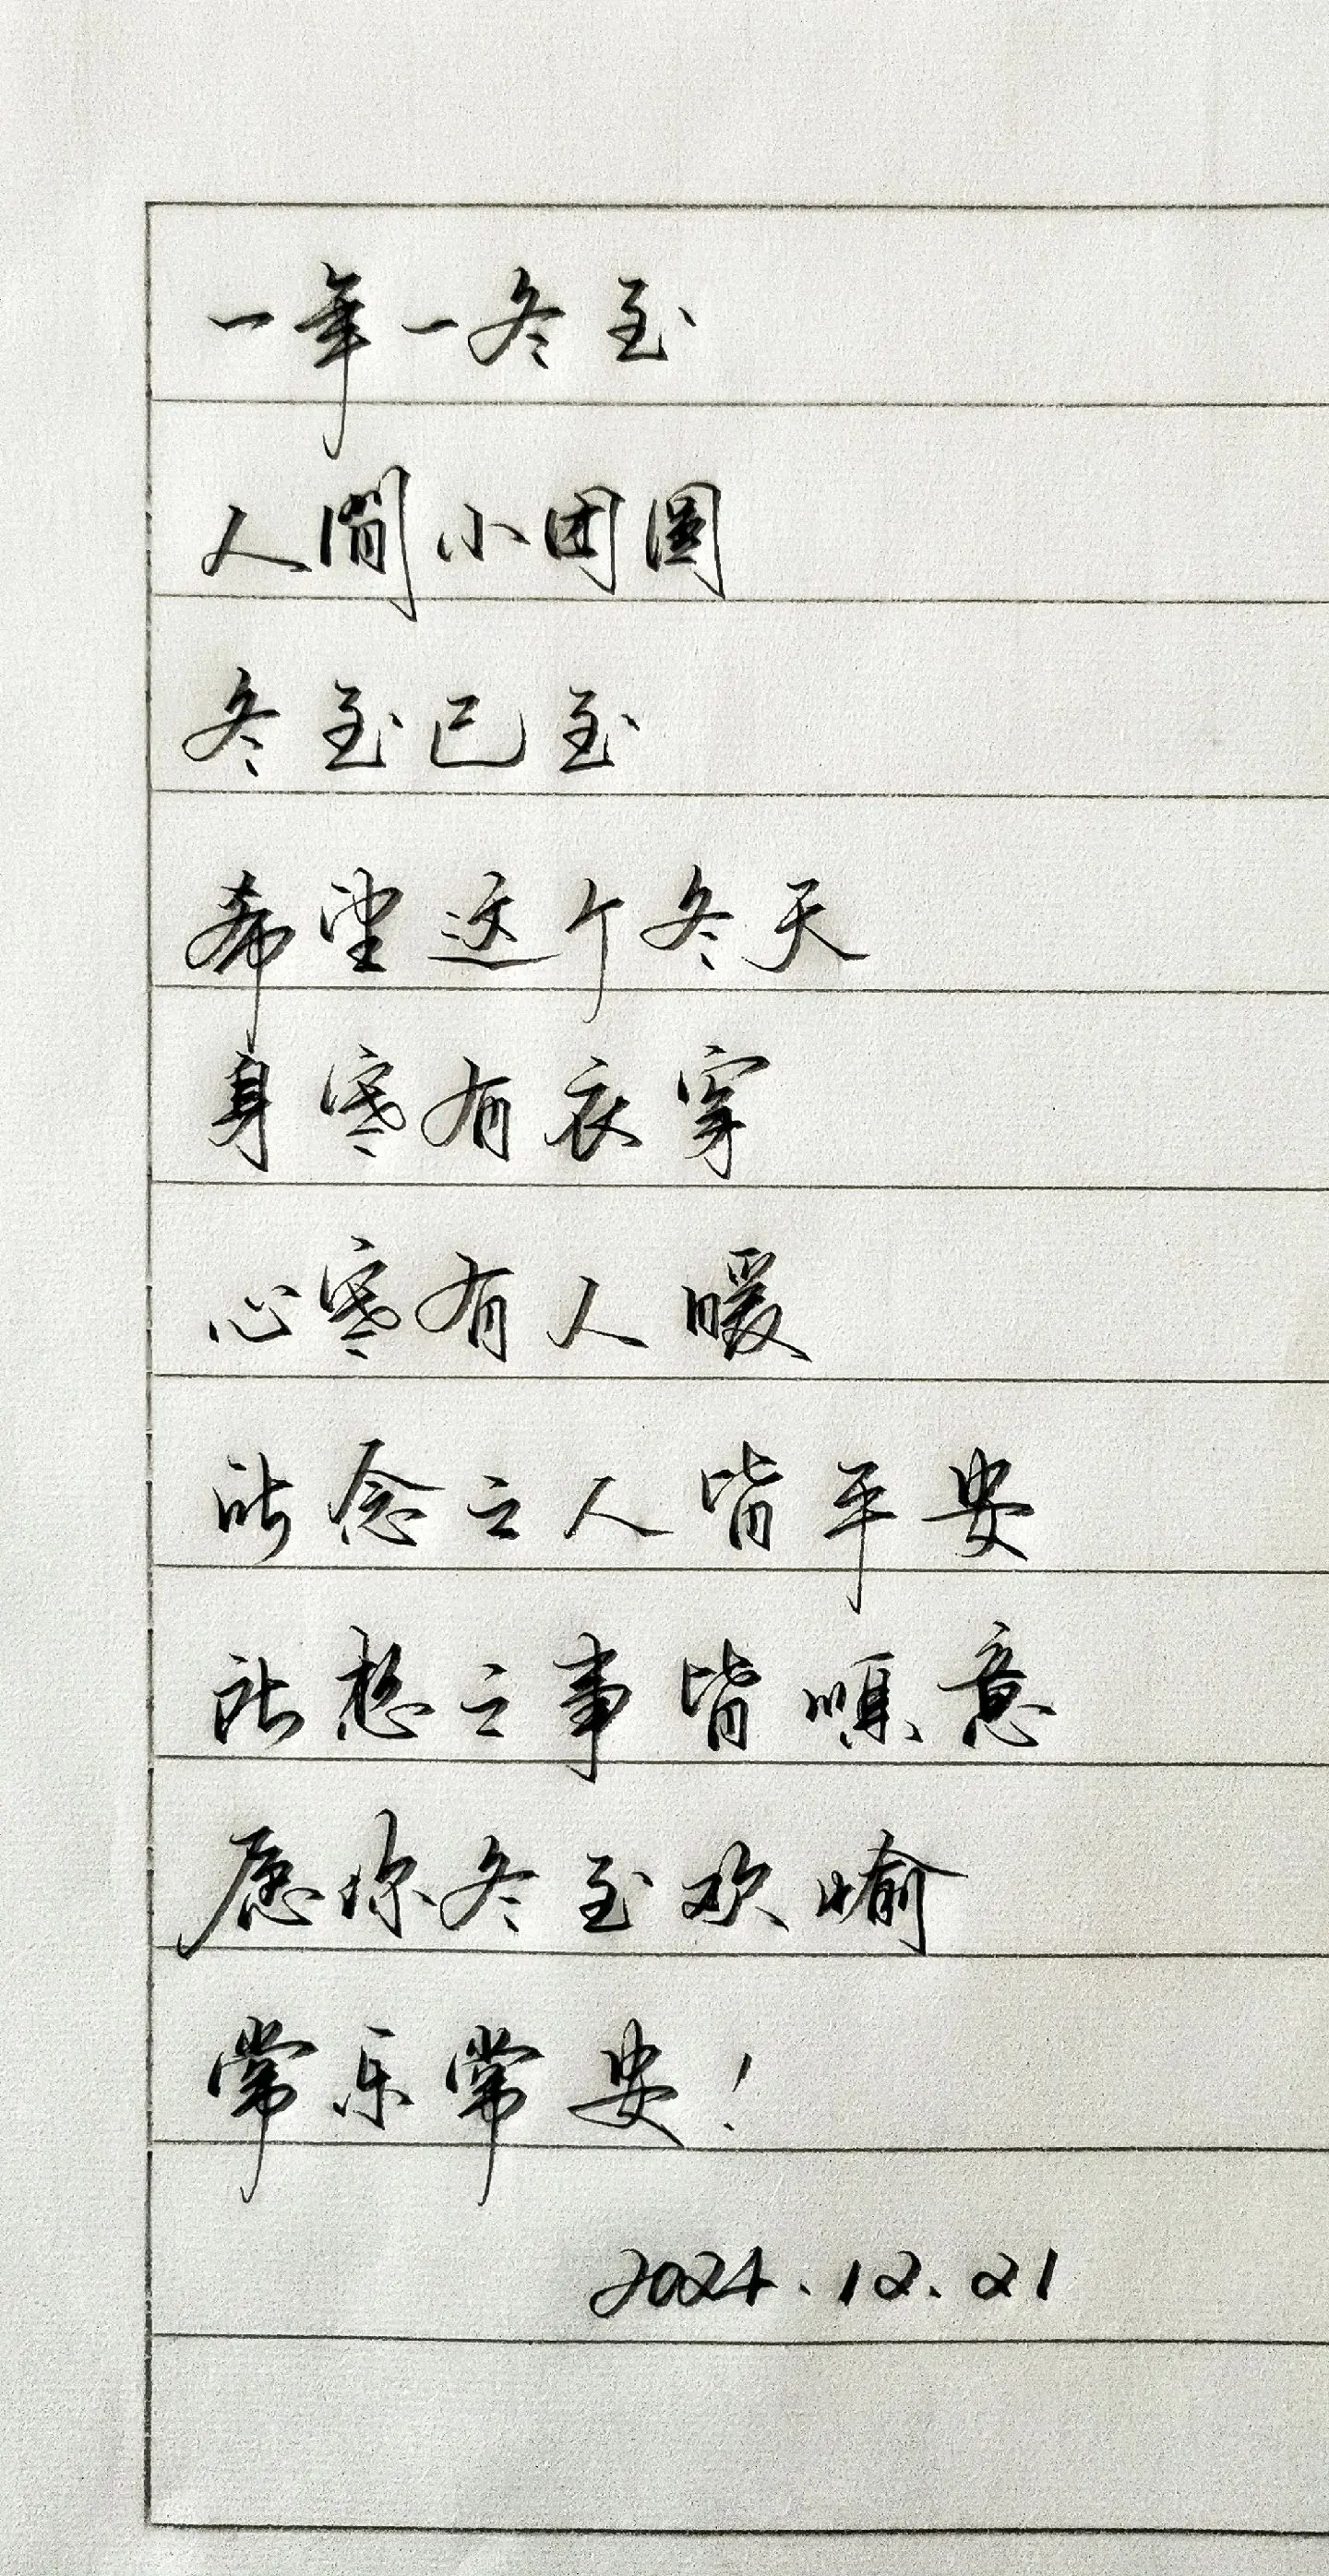 一年一冬至
人間小团圆
冬至已至
希望这个冬天
身寒有衣穿
心寒有人暖
所念之人皆平安
所想之事皆顺意
愿你冬至欢愉
常乐常安！
2024.12.21